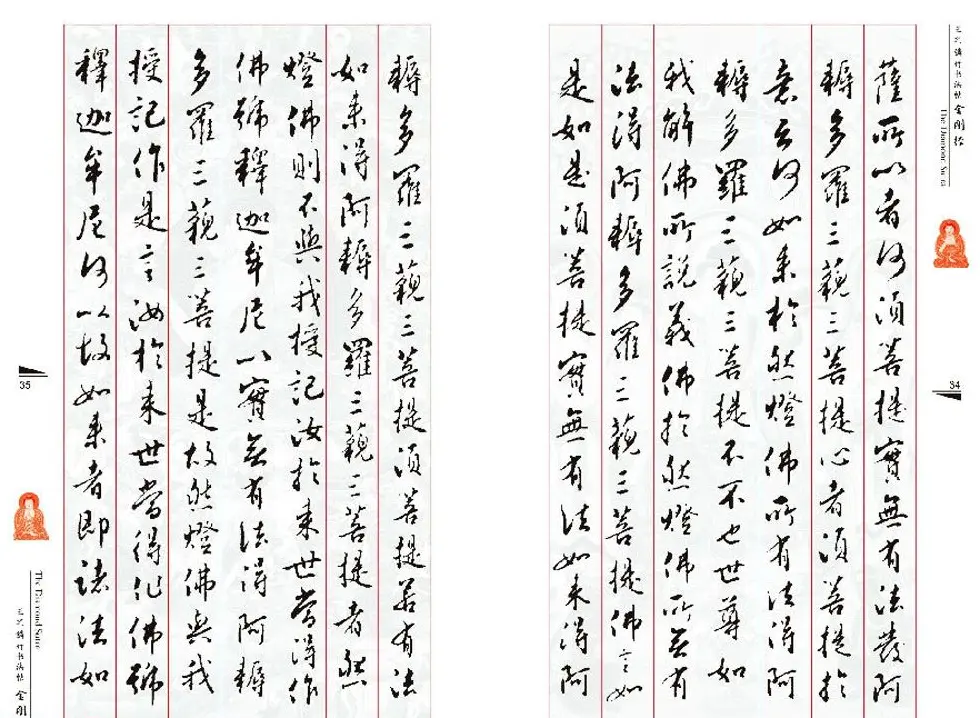 行书法帖 金刚经
The Diamond Sutra
34
薩所以者何須菩提實無有法發阿
耨多羅三藐三菩提心者須菩提於
意云何如來於然燈佛所有法得阿
耨多羅三藐三菩提不不也世尊如
我解佛所說義佛於然燈佛所無有
法得阿耨多羅三藐三菩提佛言如
是如是須菩提實無有法如來得阿
耨多羅三藐三菩提須菩提若有法
如來得阿耨多羅三藐三菩提者然
燈佛則不與我授記汝於來世當得作
佛號釋迦牟尼以實無有法得阿耨
多羅三藐三菩提是故然燈佛與我
授記作是言汝於來世當得作佛號
釋迦牟尼何以故如來者即諸法如
35
The Diamond Sutra
行书法帖 金刚